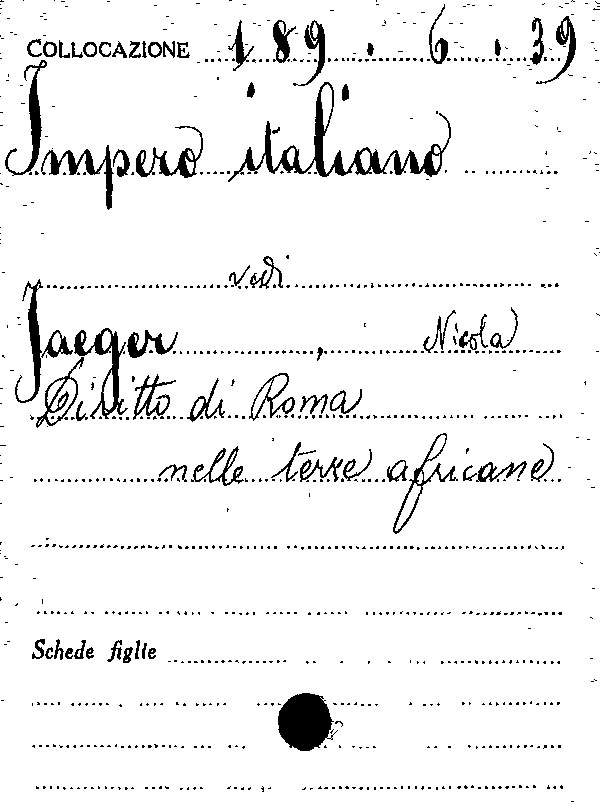 COLLOCAZIONE 189.6.39
Impero italiano
vedi
Jaeger, Nicola
Diritto di Roma
nelle terre africane
Schede figlie